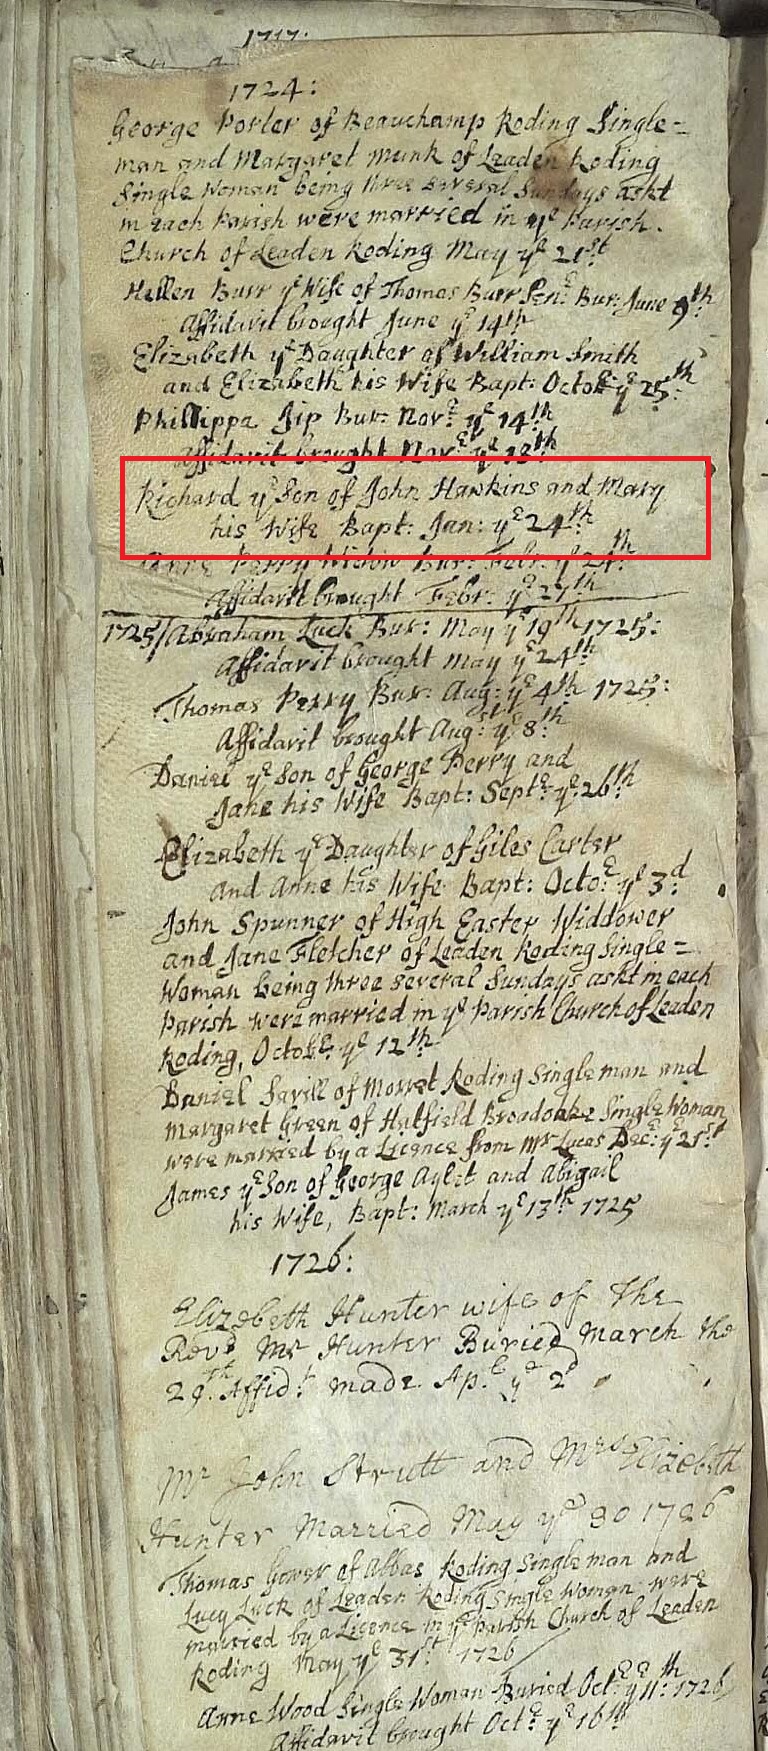 1717:
1724:
George Porter of Beauchamp Roding Single=
man and Margaret Munk of Leaden Roding
Single Woman being three several Sundays askt
in each Parish were married in ye Parish.
Church of Leaden Roding May ye 21st
Hellen Burr ye Wife of Thomas Burr Senr: Bur: June 9th:
Affidavit brought June ye 14th
Elizabeth ye Daughter of William Smith
and Elizabeth his Wife Bapt: Octob: ye 25th:
Phillippa Jip Bur: Novr: ye 14th
Affidavit brought Novr: ye 18th
Richard ye Son of John Hawkins and Mary
his Wife Bapt: Jan: ye 24th:
Anne Perry Widow Bur: Febr: ye 24th:
Affidavit brought Febr: ye 27th
1725/Abraham Luck Bur: May ye 19th 1725:
Affidavit brought May ye 24th:
Thomas Perry Bur: Aug: ye 4th: 1725:
Affidavit brought Augst: ye 8th:
Daniel ye Son of George Perry and
Jane his Wife Bapt: Septe: ye 26th:
Elizabeth ye Daughter of Giles Carter
and Anne his Wife Bapt: Octo: ye 3d:
John Spunner of High Easter Widdower
and Jane Fletcher of Leaden Roding Single=
Woman being three several Sundays askt in each
Parish were married in ye Parish Church of Leaden
Roding, Octobe: ye 12th:
Daniel Savill of Morret Roding Single man and
Margaret Green of Hatfield Broadoake Single Woman
were married by a Licence from Mr Lucas Dec: ye 21st
James ye Son of George Aylit and Abigail
his Wife, Bapt: March ye 13th: 1725
1726:
Elizebeth Hunter wife of The
Revd Mr Hunter Buried March the
29.th Affidt: made Ap:l ye 2d
Mr John Strutt and Mrs Elizebeth
Hunter Married May ye 30 1726
Thomas Gower of Abbas Roding Single man and
Lucy Luck of Leaden Roding Single Woman were
married by a Licence in ye Parish Church of Leaden
Roding May ye 31st: 1726
Anne Wood Single Woman Buried Octe: ye 11:th 1726
Affidavit brought Octe: ye 16th